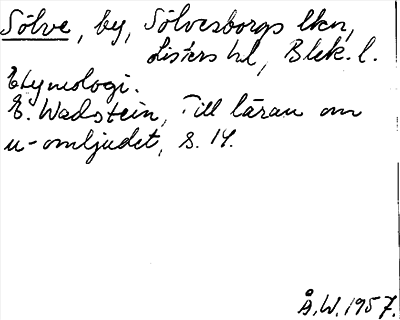 Sölve, by, Sölvesborgs lkn,
Listers hd, Blek. l.
Etymologi.
E. Wadstein, Till läran om
u-omljudet, s. 14.
Å.W. 1957.